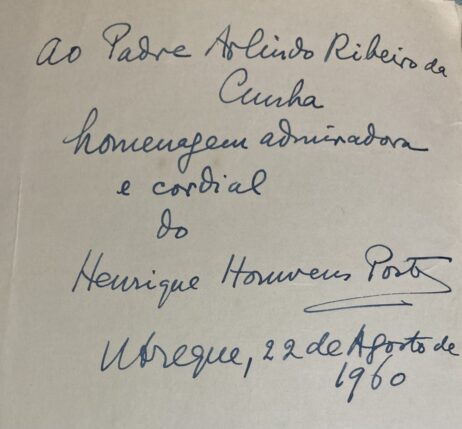 ao Padre Arlindo Ribeiro da
Cunha
homenagem admiradora
e cordial
do
Henrique Houwens Post
Utreque, 22 de Agosto de
1960